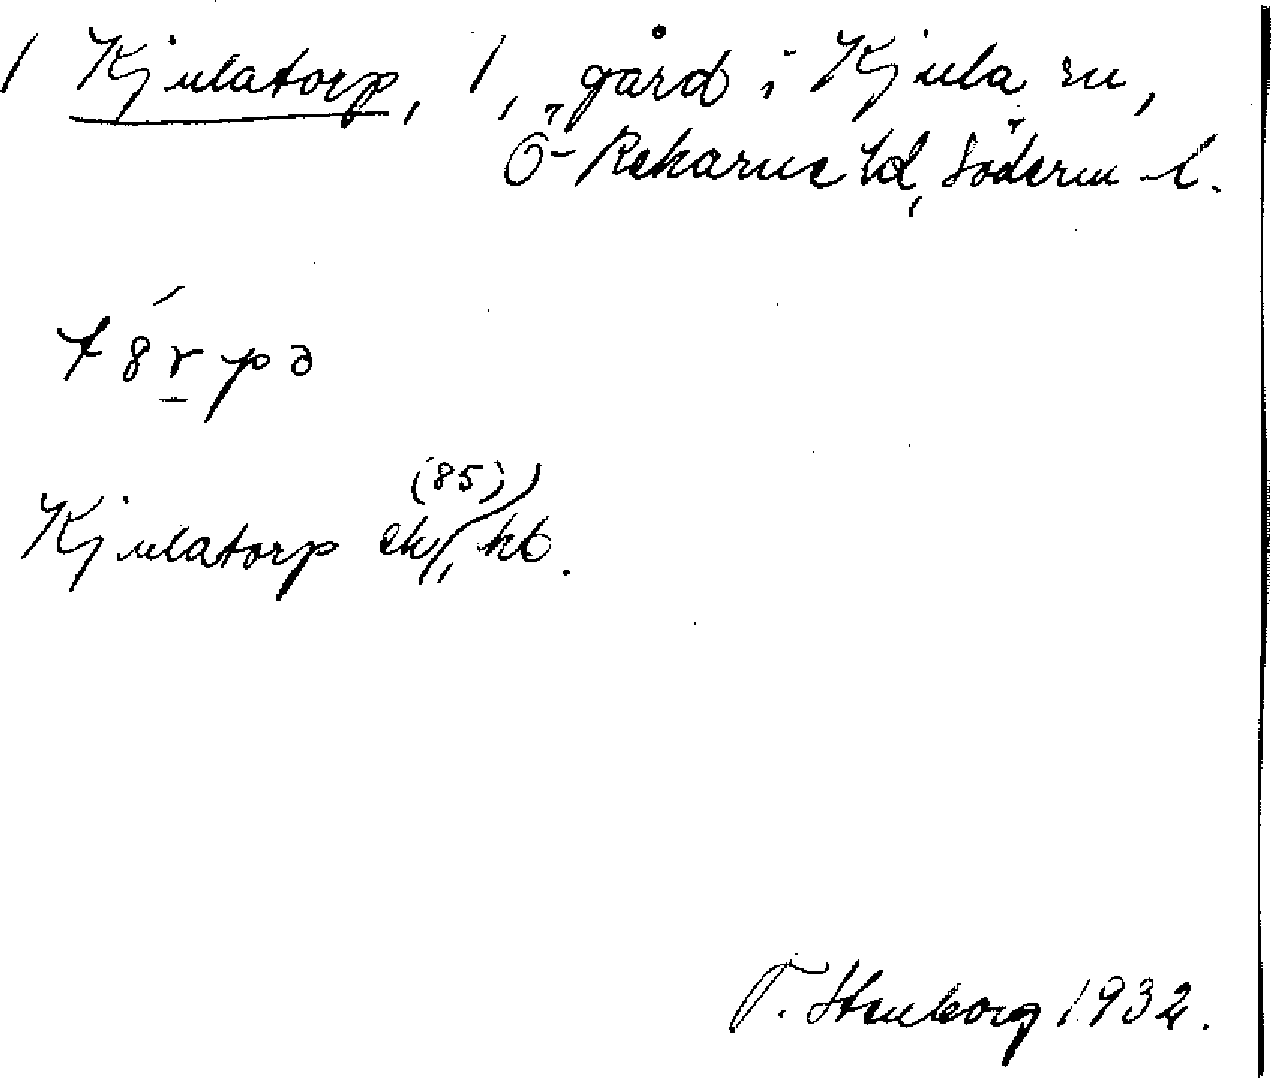 / Kjulatorp, 1, gård i Kjula sn,
Ö-Rekarne hd, Söderm l.
t8rpə
(85)
Kjulatorp ek, kb.
T. Stenborg 1932.